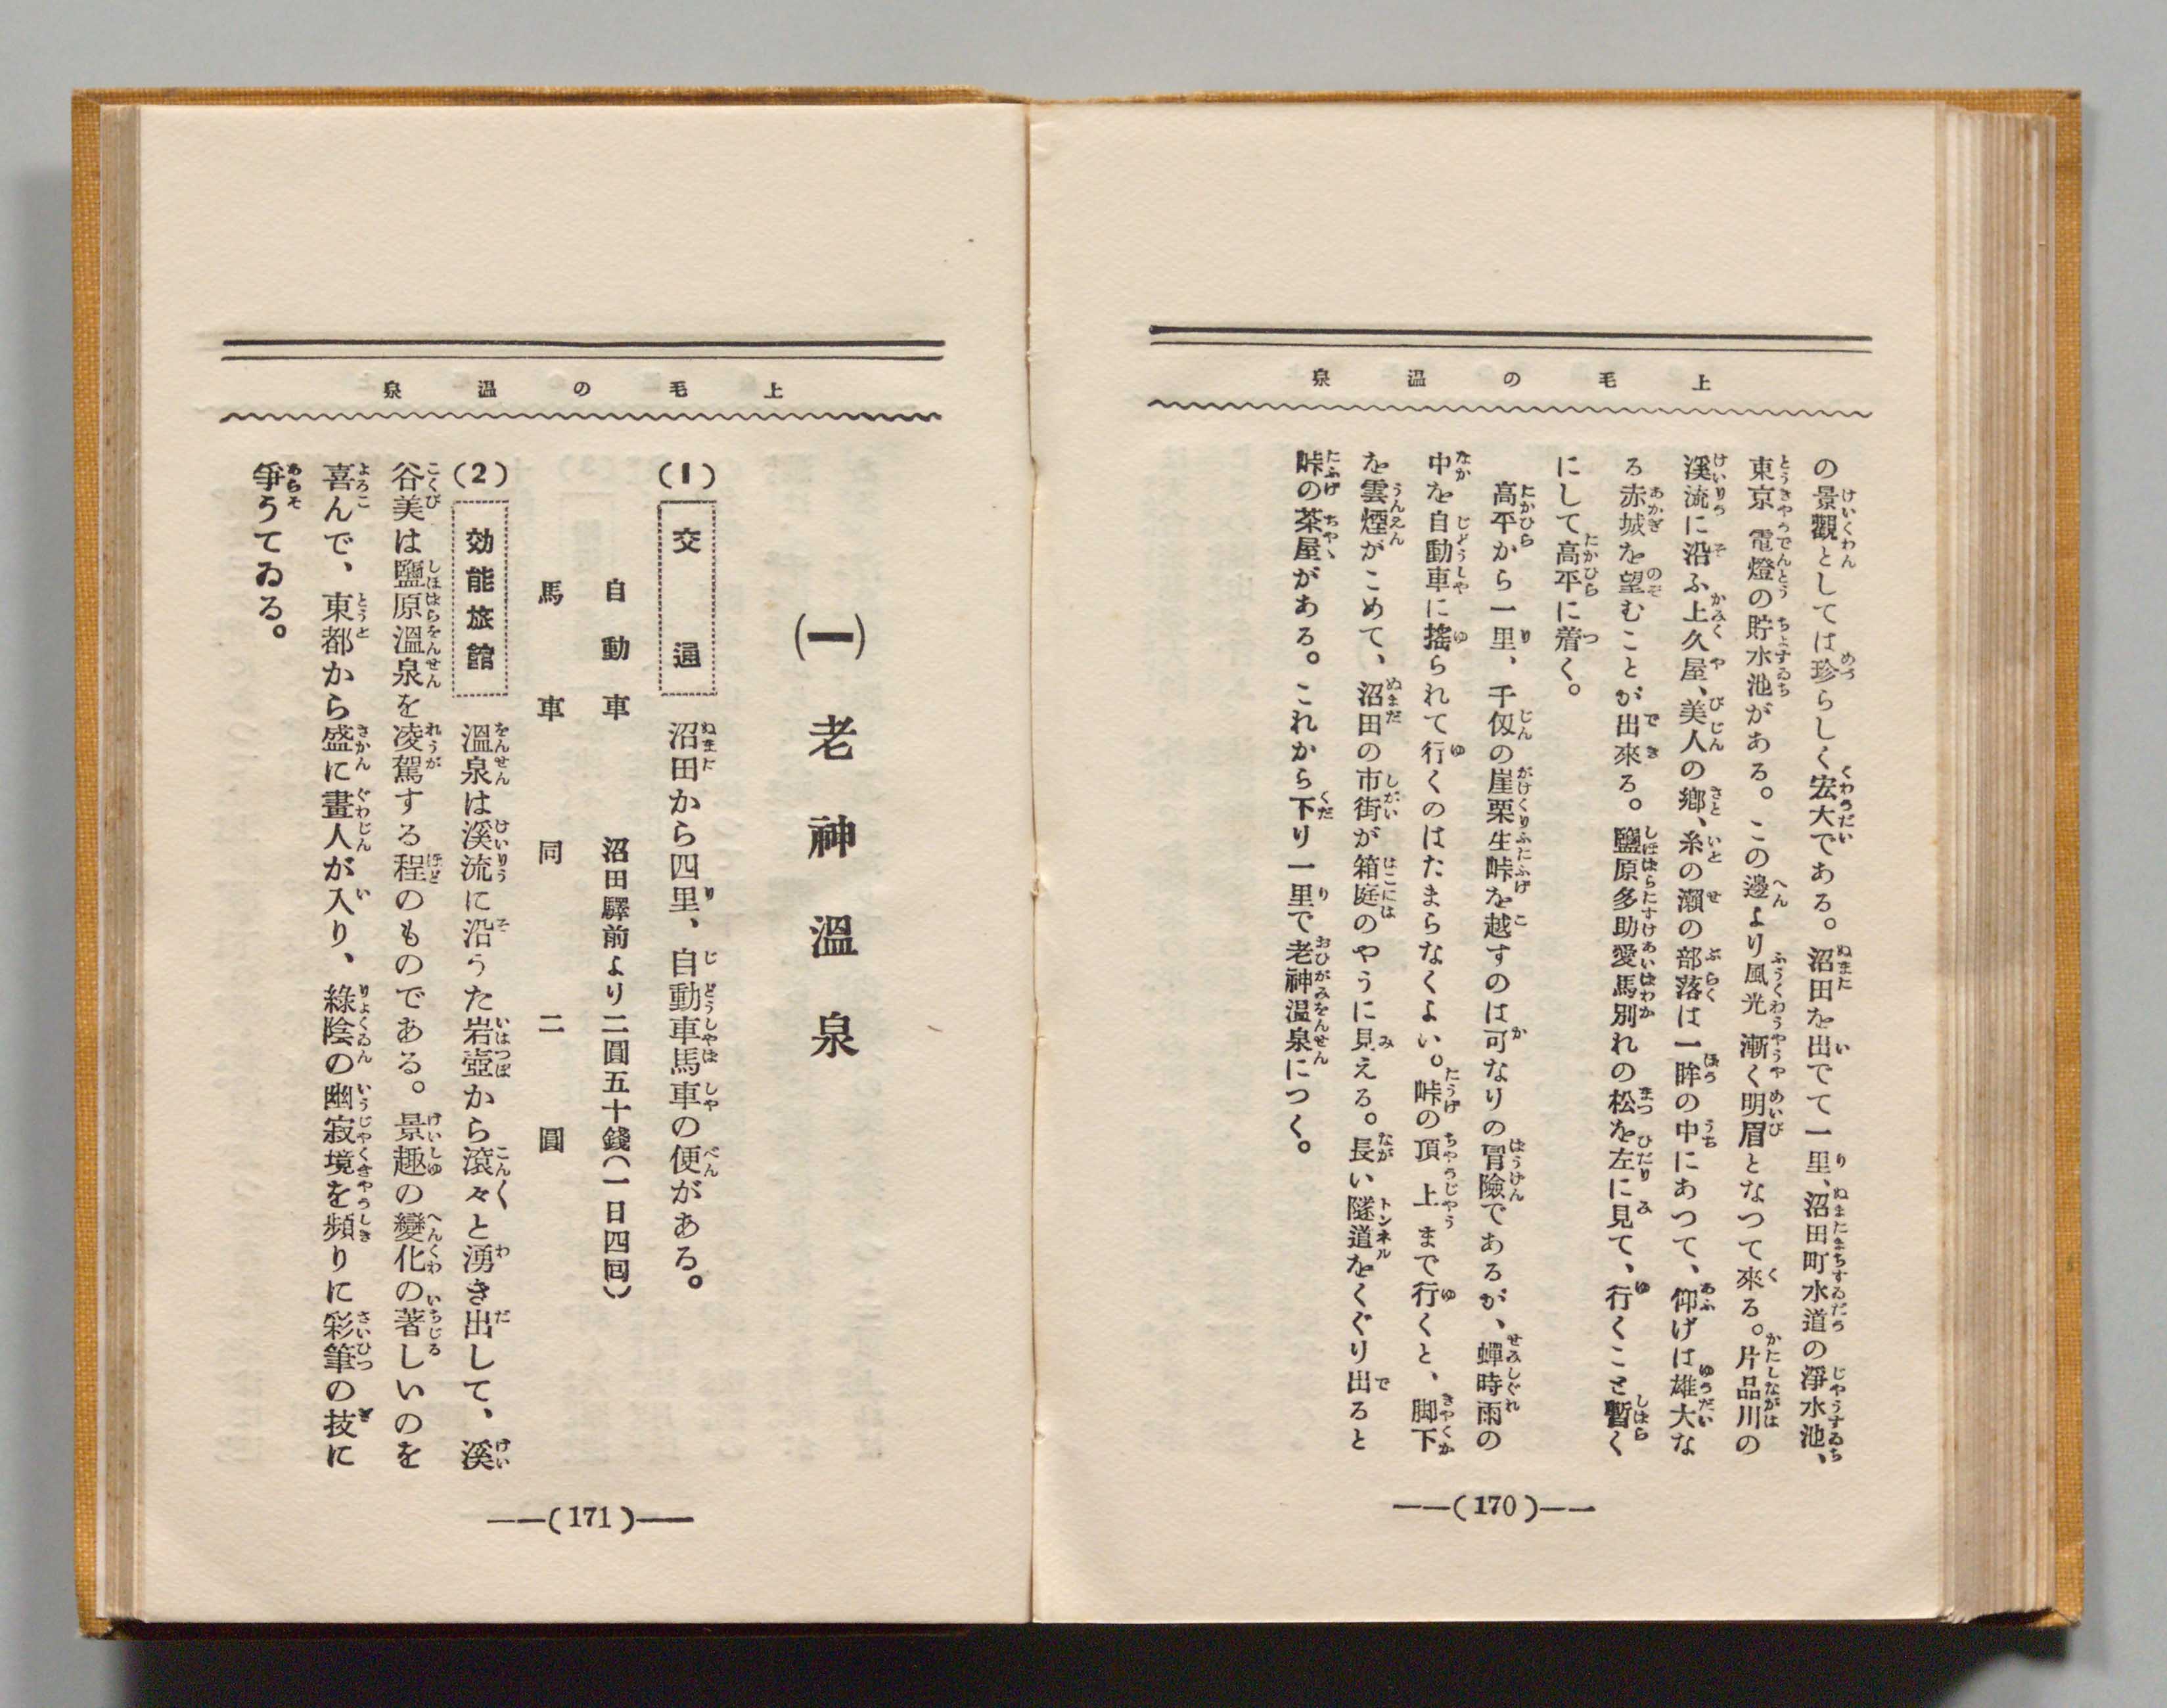 上毛の温泉
の景觀としては珍らしく宏大である。沼田を出でて一里、沼田町水道の淨水池、
東京電燈の貯水池がある。この邊より風光漸く明眉となつて來る。片品川の
溪流に沿ふ上久屋、美人の鄕、糸の瀨の部落は一眸の中にあつて、仰げは雄大な
る赤城を望むことが出來る。鹽原多助愛馬別れの松を左に見て、行くこと暫く
にして高平に着く。
高平から一里、千仭の崖栗生峠を越すのは可なりの冐險であるが、蟬時雨の
中を自動車に搖られて行くのはたまらなくよい。峠の頂上まで行くと、脚下
を雲煙がこめて、沼田の市街が箱庭のやうに見える。長い隧道をくぐり出ると
峠の茶屋がある。これから下り一里で老神温泉につく。
——(170)——
上毛の温泉
(一)老神溫泉
(1)交通 沼田から四里、自動車馬車の便がある。
自動車 沼田驛前より二圓五十錢(一日四回)
馬車 同 二圓
(2)効能旅館 溫泉は溪流に沿うた岩壺から滾々と湧き出して、溪
谷美は鹽原溫泉を凌駕する程のものである。景趣の變化の著しいのを
喜んで、東都から盛に畫人が入り、綠陰の幽寂境を頻りに彩筆の技に
爭うてゐる。
——(171)——